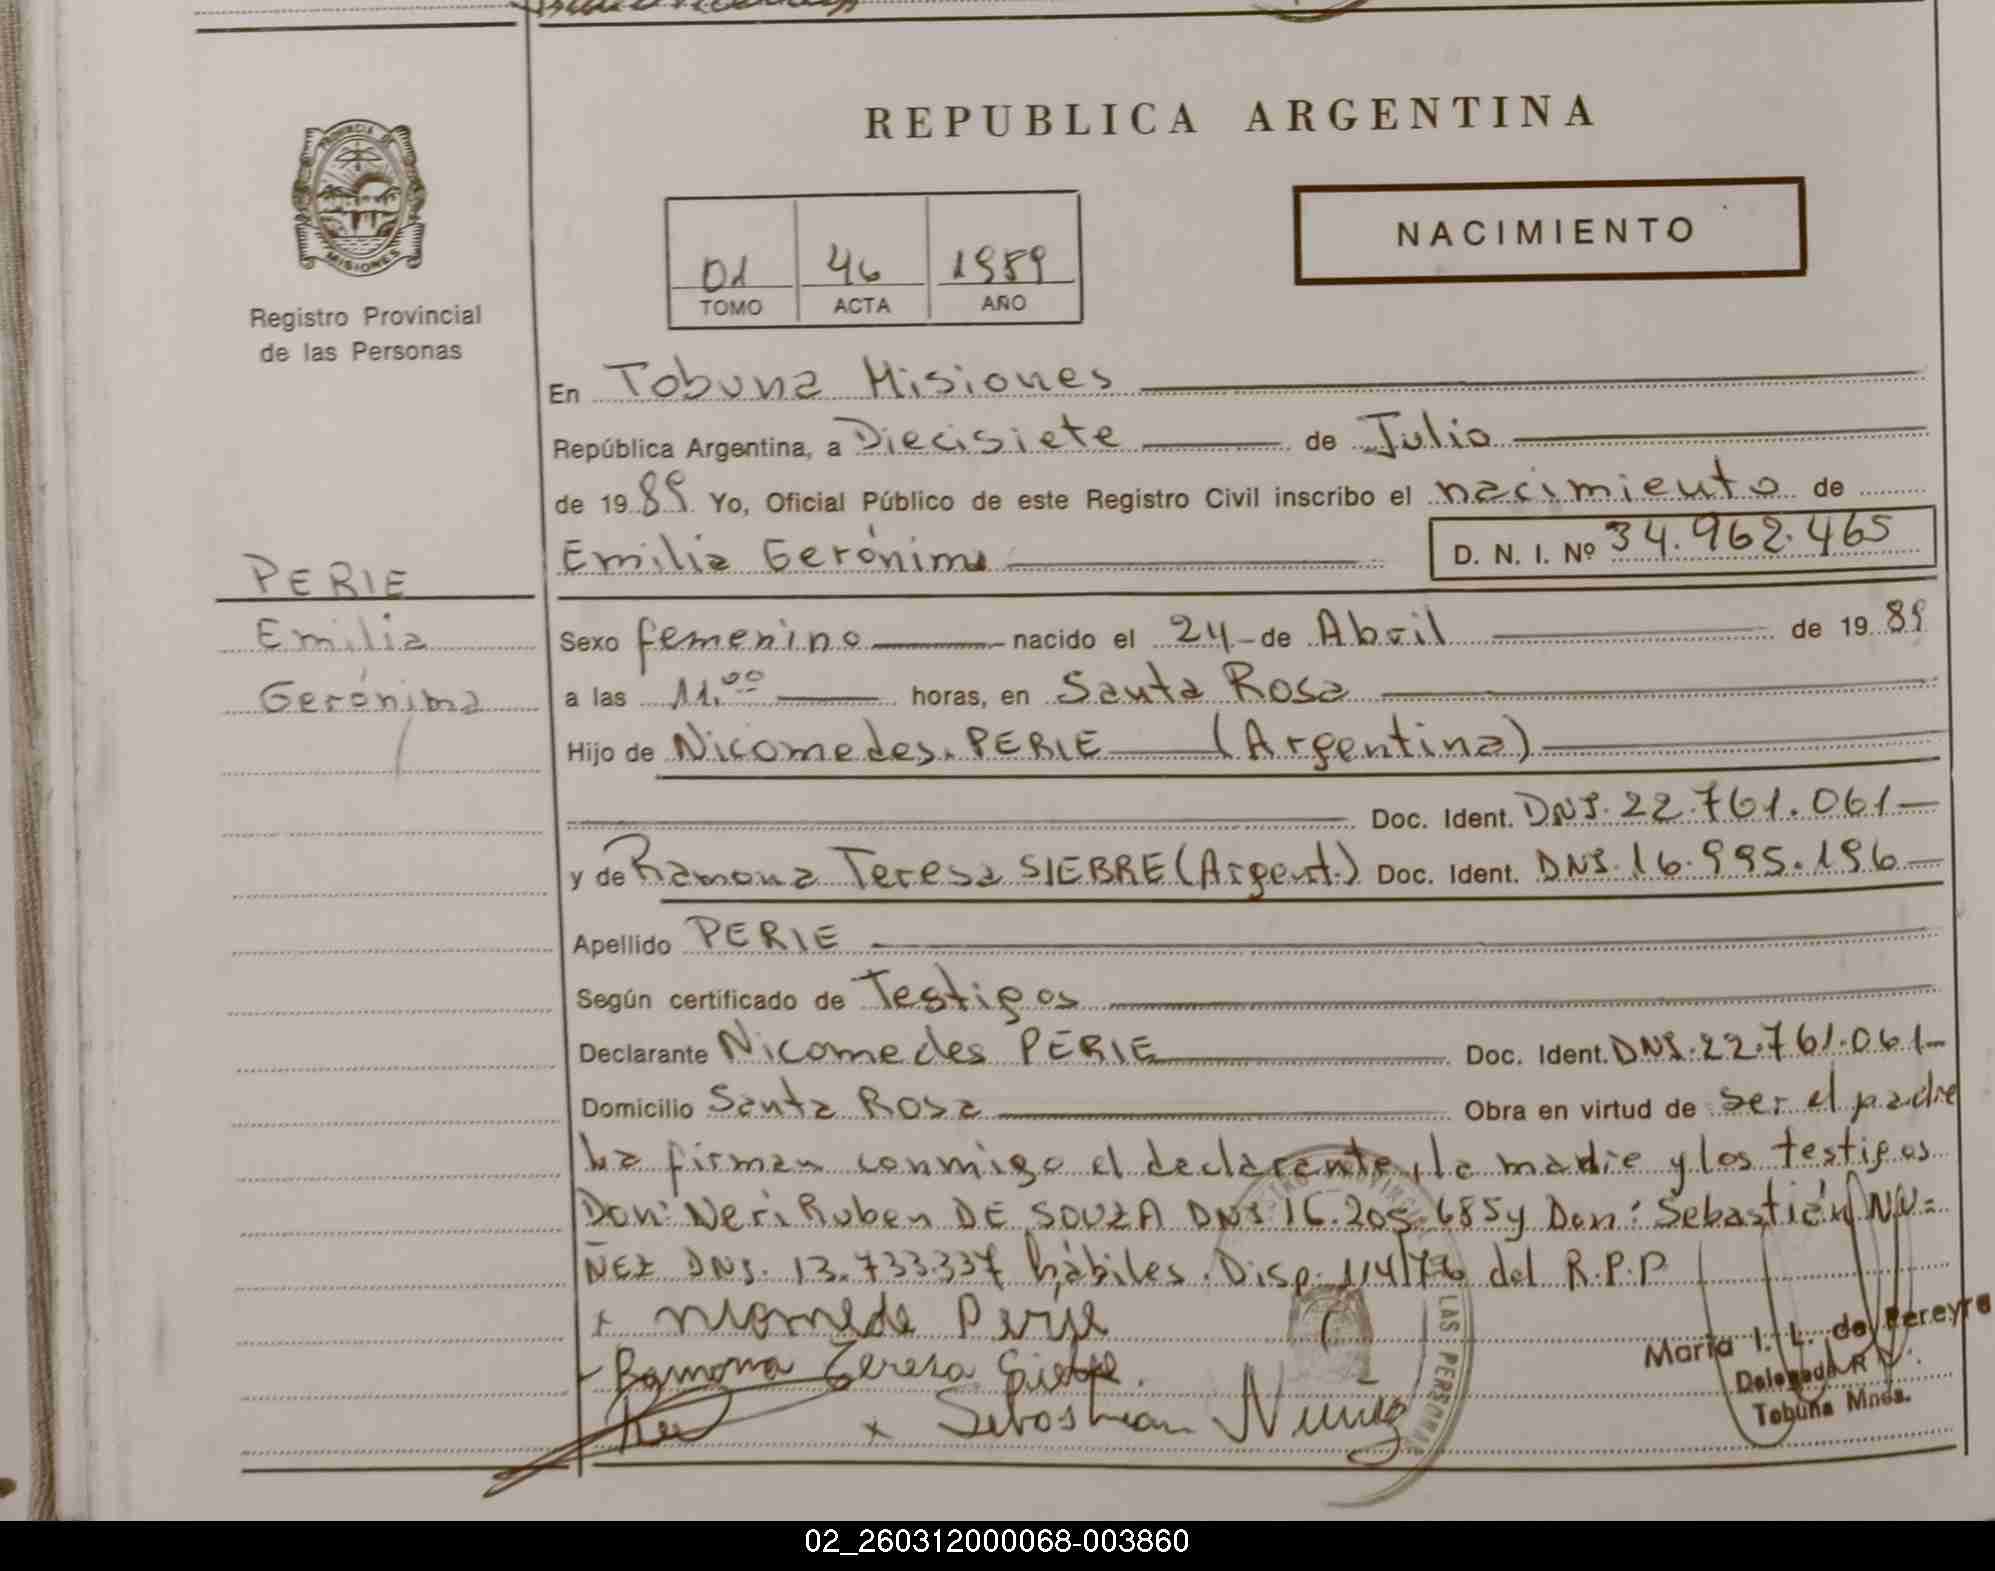 REPUBLICA ARGENTINA
PROVINCIA DE
MISIONES
NACIMIENTO
01 46 1989
TOMO ACTA AÑO
Registro Provincial
de las Personas
En Tobuna Misiones
República Argentina, a Diecisiete de Julio
de 1989 Yo, Oficial Público de este Registro Civil inscribo el nacimiento de
Emilia Gerónima D. N. I. Nº 34.962.465
PERIE
Emilia
Gerónima
Sexo femenino nacido el 24 de Abril de 1989
a las 11.00 horas, en Santa Rosa
Hijo de Nicomedes PERIE (Argentina)
Doc. Ident. DNI. 22.761.061
y de Ramona Teresa SIEBRE (Argent.) Doc. Ident. DNI. 16.995.196
Apellido PERIE
Según certificado de Testigos
Declarante Nicomedes PERIE Doc. Ident. DNI. 22.761.061
Domicilio Santa Rosa Obra en virtud de ser el padre
La firman conmigo el declarante, la madre y los testigos
Don: Neri Ruben DE SOUZA DNI 16.205.685 y Don: Sebastián NU=
ÑEZ DNI. 13.733.337 hábiles. Disp. 114/76 del R.P.P
x Nicomede Perie
Ramona Teresa
x Sebastian Nuñez
LAS PERSONAS
Maria I. L. de Pereyra
Delegada R
Tobuna Mnes.
02_260312000068-003860